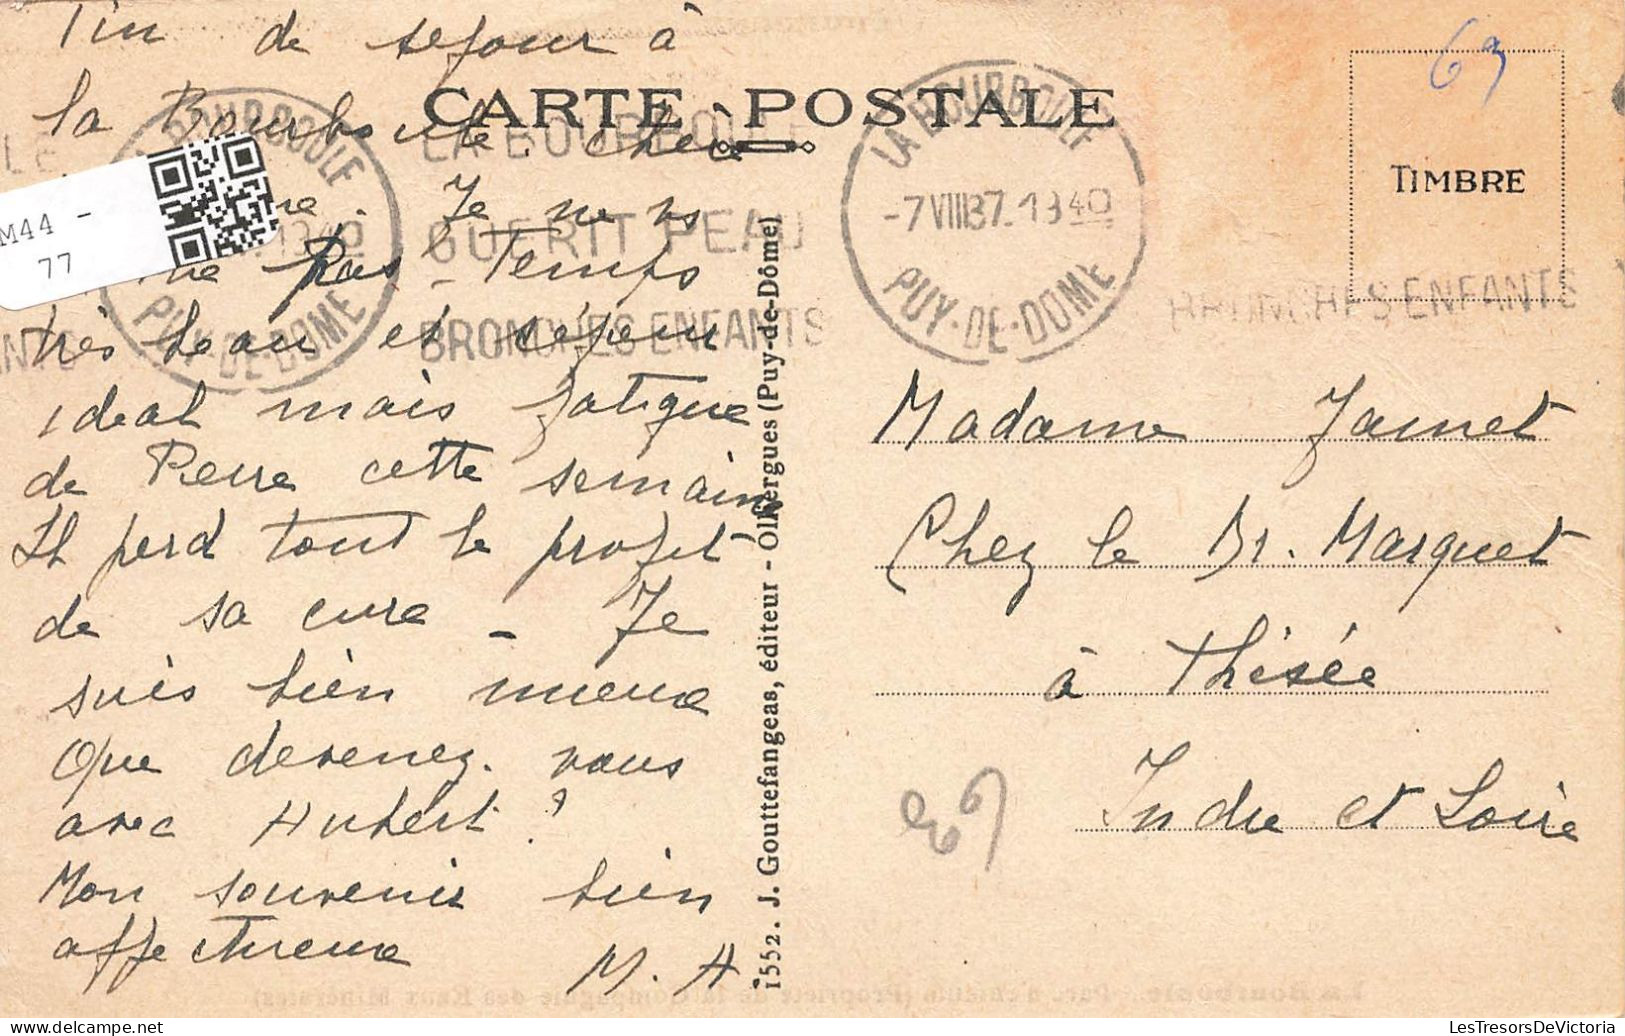 Fin de sejour à
la Bourboule. chère
Je ne vs
pas - Temps
très beau et séjour
ideal mais fatigue
de Pierre cette semaine
Il perd tout le profit
de sa cure - Je
suis bien mieux
Que devenez-vous
avec Hubert ?
Mon souvenir bien
affectueux
M. A
CARTE POSTALE
LA BOURBOULE
GUERIT PEAU
BRONCHES ENFANTS
LA BOURBOULE
-7 VIII 37. 1940
PUY-DE-DOME
BOURBOULE
1940
PUY-DE-DOME
BRONCHES ENFANTS
TIMBRE
69
M44 -
77
1552. J. Gouttefangeas, éditeur - Olliergues (Puy-de-Dôme)
Madame Jamet
Chez le Dr. Marquet
à Thésée
Indre et Loire
LesTresorsDeVictoria